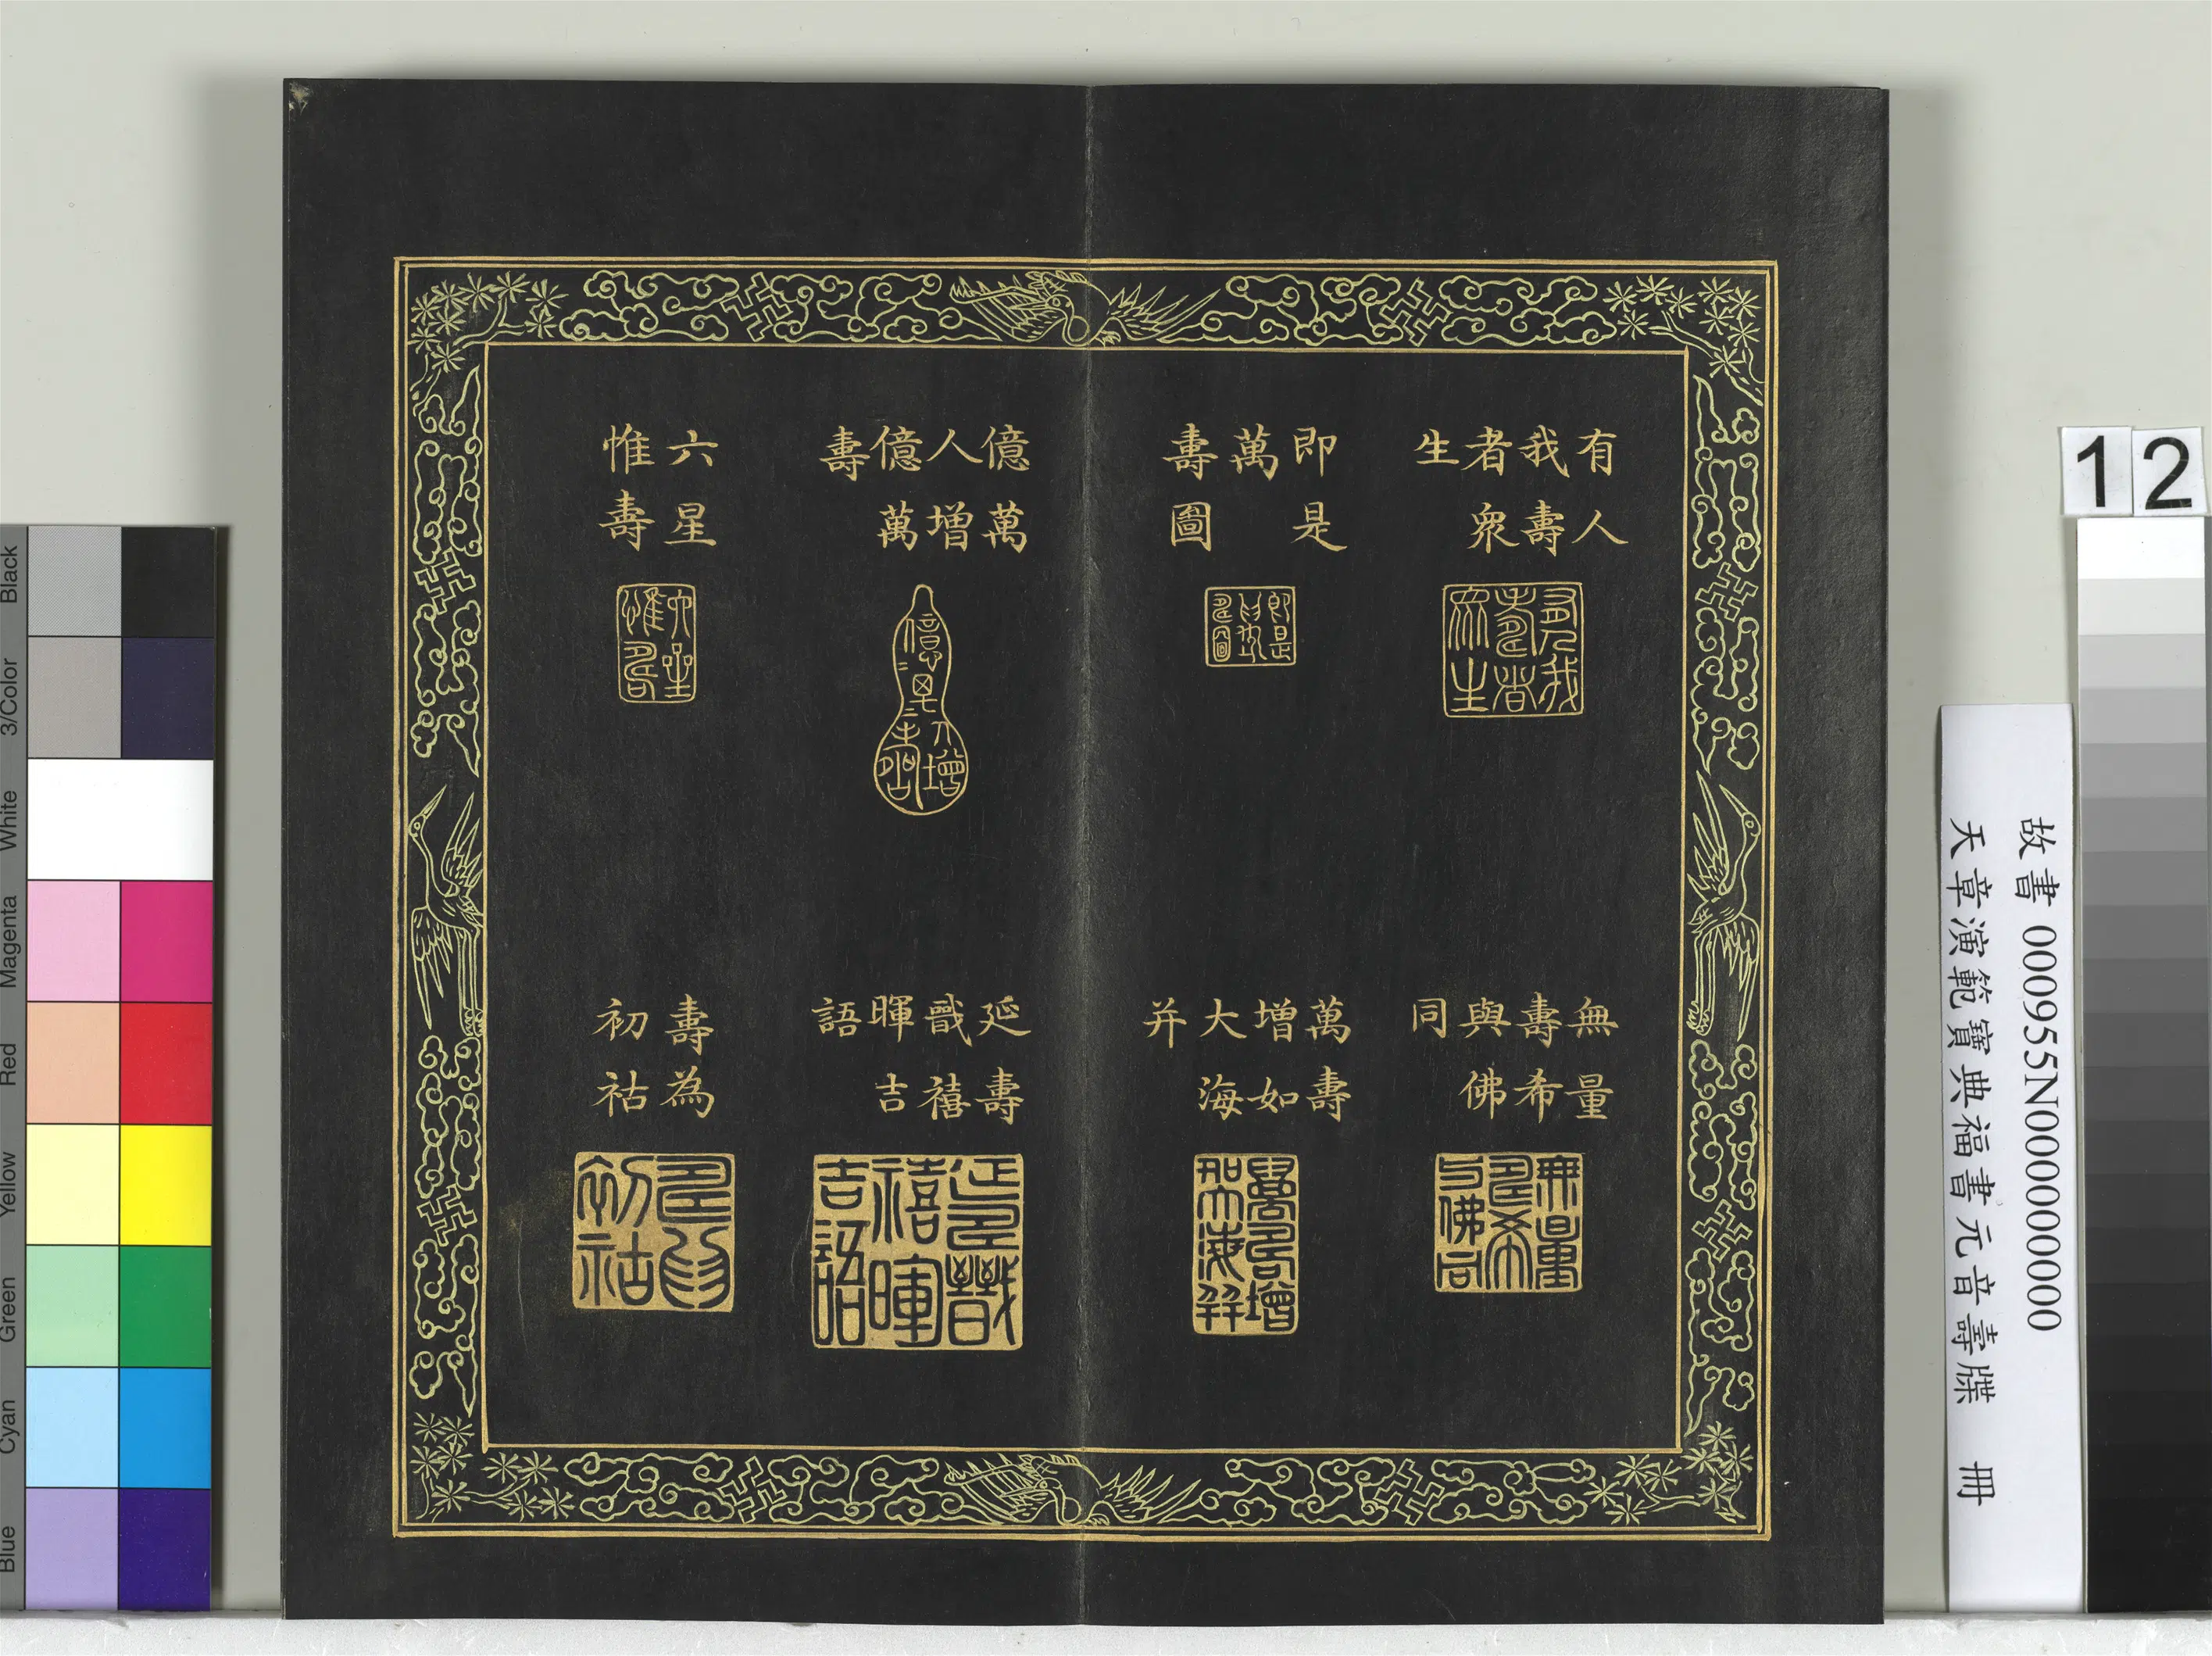 有人
我壽
者衆
生
即是
萬
壽圖
億萬
人增
億萬
壽
六星
惟壽
無量
壽希
與佛
同
萬壽
增如
大海
并
延壽
戬禧
暉吉
語
壽為
初祜
12
故書 000955N000000000
天章演範寶典福書元音壽牒 冊
Black
3/Color
White
Magenta
Red
Yellow
Green
Cyan
Blue